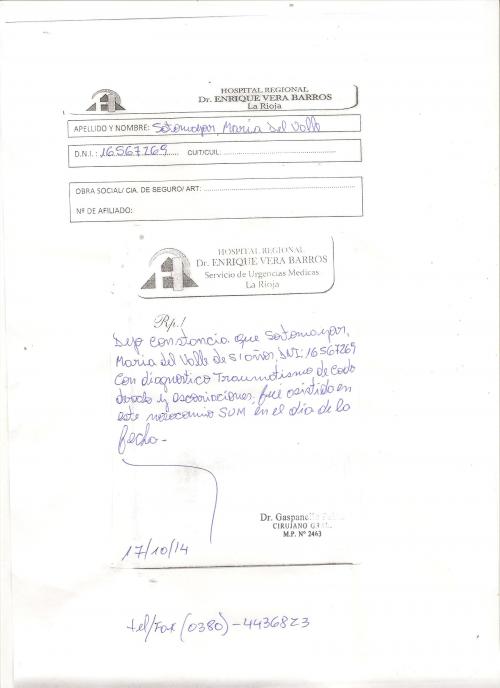 HOSPITAL REGIONAL
Dr. ENRIQUE VERA BARROS
La Rioja
APELLIDO Y NOMBRE: Sotomayor Maria del Valle
D.N.I. : 16567269 CUIT/CUIL:
OBRA SOCIAL/ CIA. DE SEGURO/ ART:
Nº DE AFILIADO:
HOSPITAL REGIONAL
Dr. ENRIQUE VERA BARROS
Servicio de Urgencias Medicas
La Rioja
Rp.!
Dejo constancia que Sotomayor,
Maria del Valle de 51 años, DNI: 16567269
Con diagnostico Traumatismo de codo
y escoriaciones, fué asistido en
este nosocomio SUM en el día de la
fecha-
Dr. Gaspanello
CIRUJANO
M.P. Nº 2463
17/10/14
tel/Fax (0380)-4436823